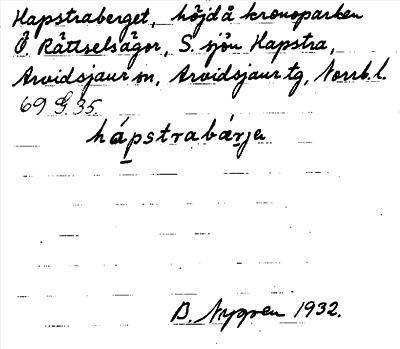 Hapstraberget, höjd å kronoparken
Ö. Rättselsågor, S. sjön Hapstra,
Arvidsjaur sn, Arvidsjaur tg, Norrb. l.
69 G. 35.
hápstrabárja
B. Nyppen 1932.